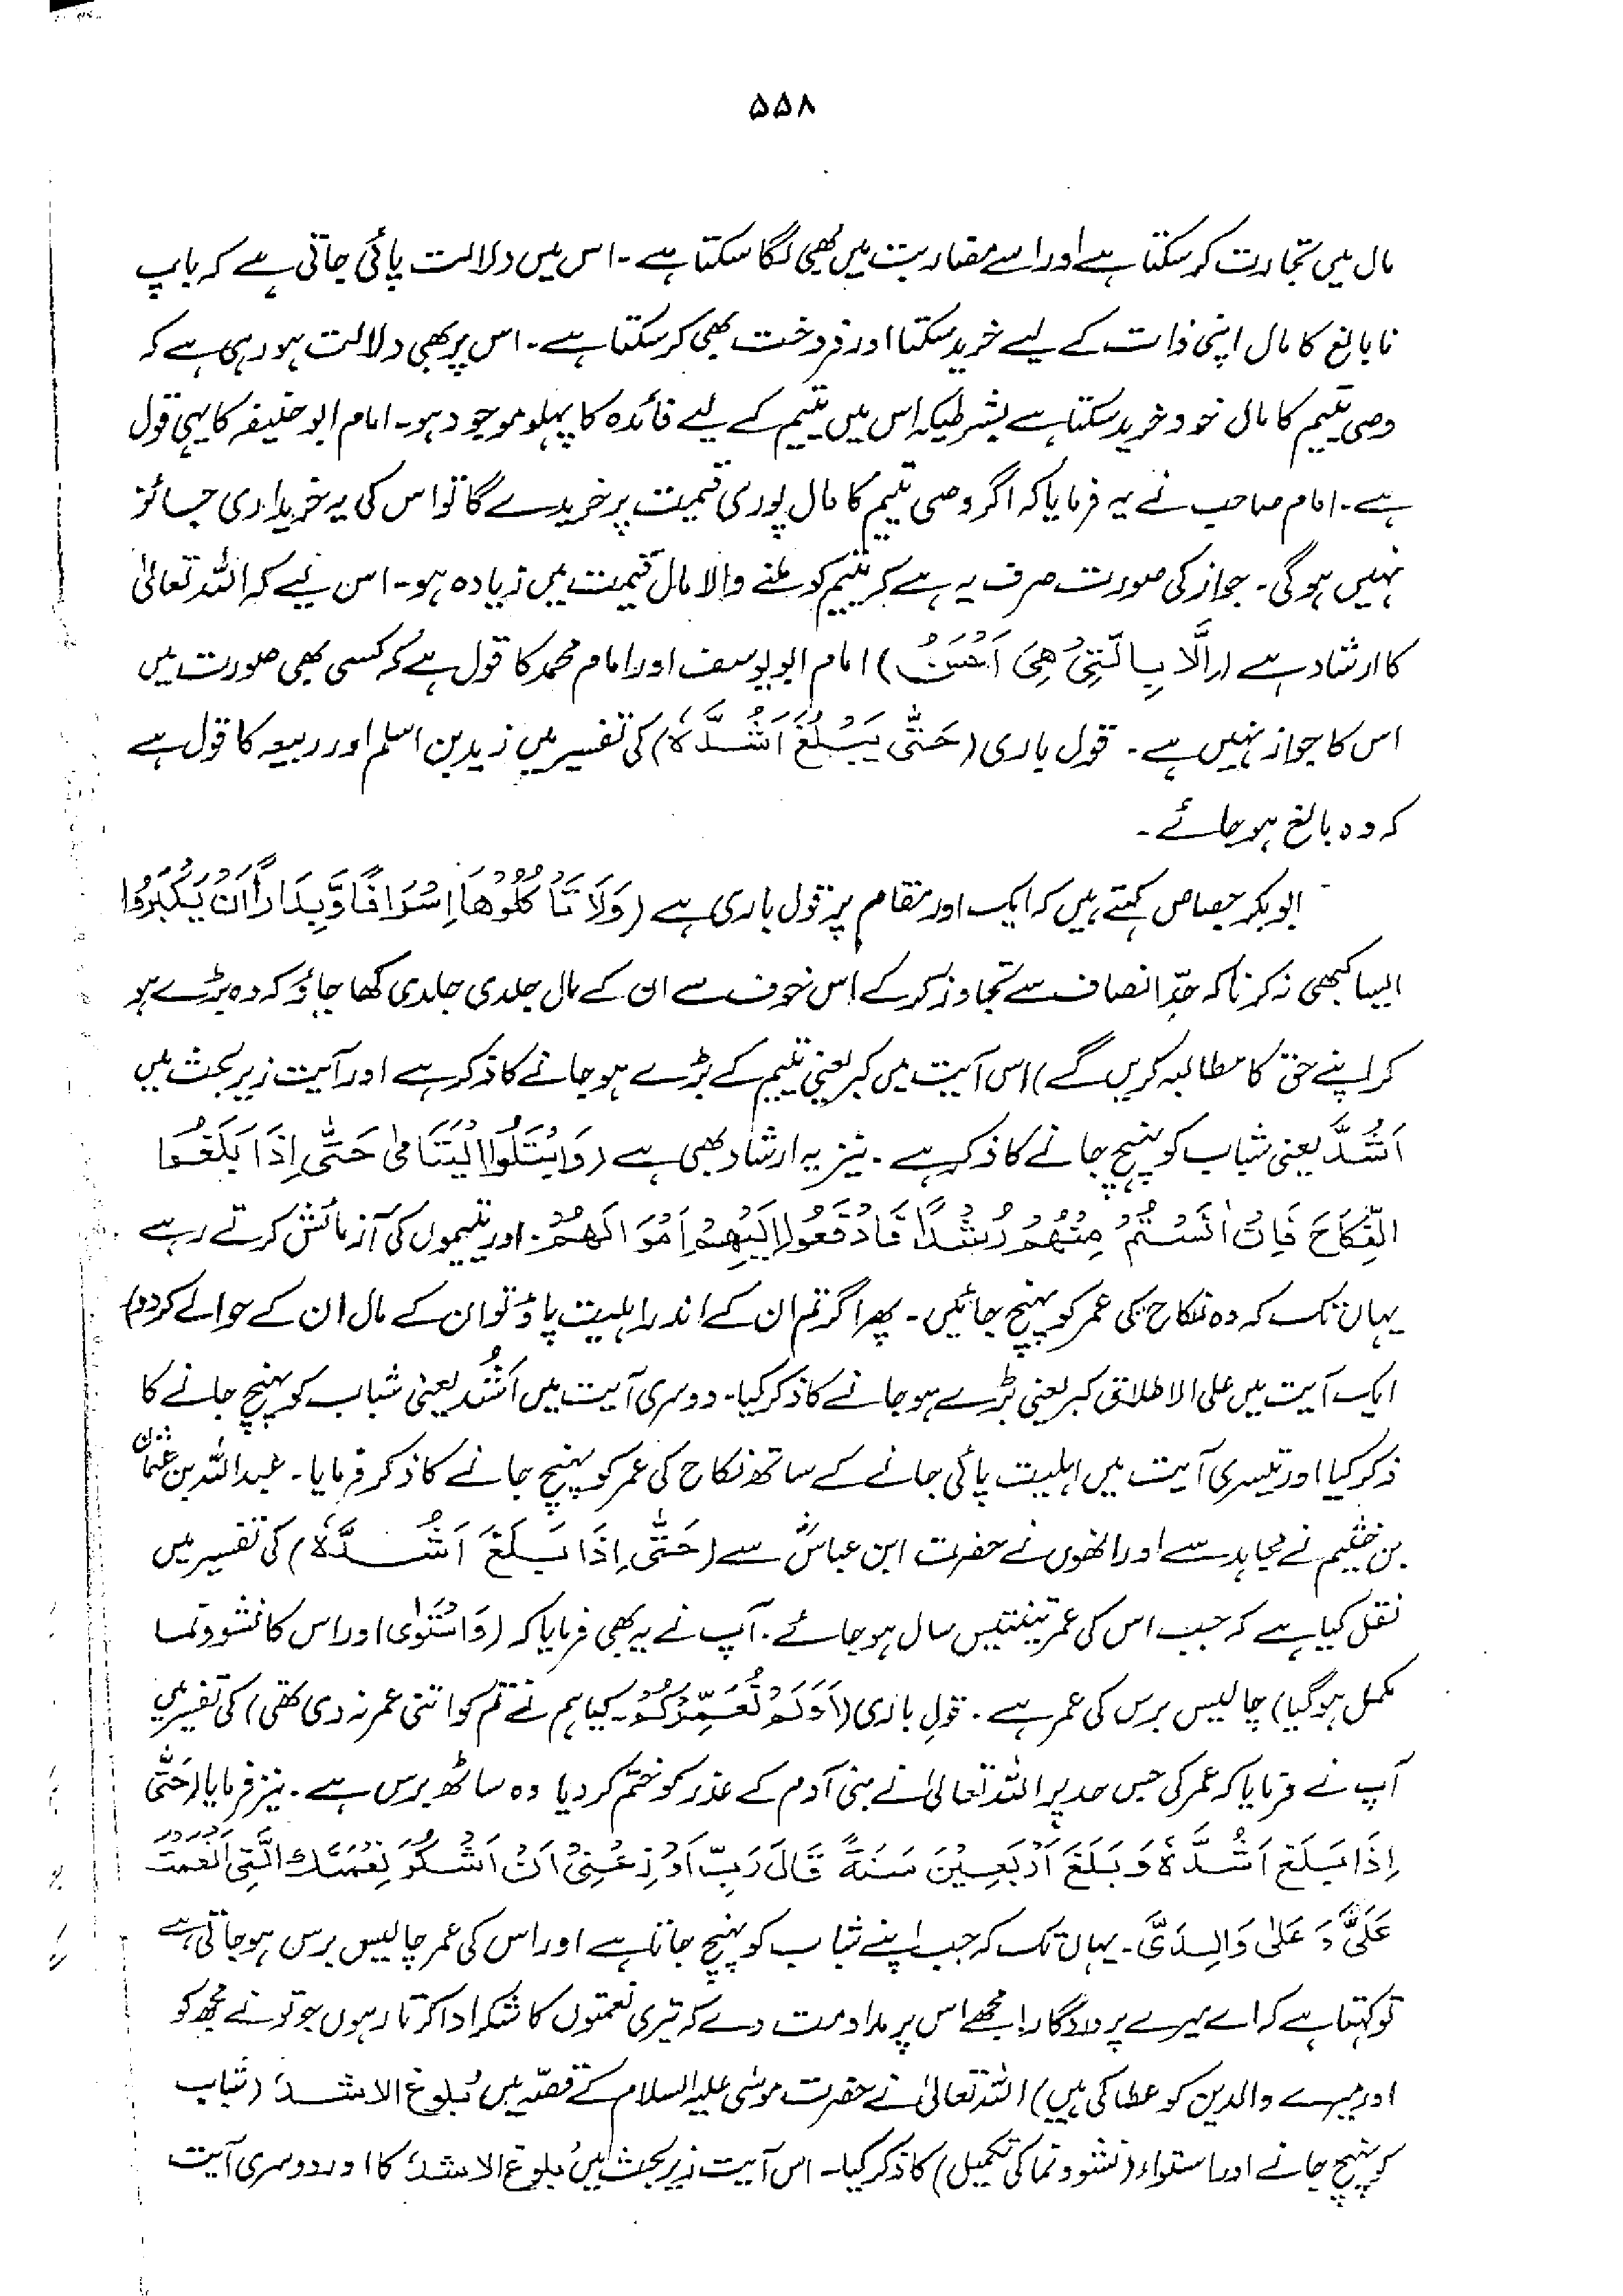 ۵۵۸
مال میں تجارت کر سکتا ہے اور اسے مضاربت میں بھی لگا سکتا ہے۔ اس میں دلالت پائی جاتی ہے کہ باپ
نابالغ کا مال اپنی ذات کے لیے خرید سکتا اور فروخت بھی کر سکتا ہے۔ اس پر بھی دلالت ہو رہی ہے کہ
وصی یتیم کا مال خود خرید سکتا ہے بشرطیکہ اس میں یتیم کے لیے فائدہ کا پہلو موجود ہو۔ امام ابو حنیفہ کا یہی قول
ہے۔ امام صاحب نے یہ فرمایا کہ اگر وصی یتیم کا مال پوری قیمت پر خریدے گا تو اس کی یہ خریداری جائز
نہیں ہوگی۔ جواز کی صورت صرف یہ ہے کہ یتیم کو ملنے والا مال قیمت میں زیادہ ہو۔ اس لیے کہ اللہ تعالیٰ
کا ارشاد ہے (اِلَّا بِالَّتِیْ هِیَ اَحْسَنُ) امام ابو یوسف اور امام محمد کا قول ہے کہ کسی بھی صورت میں
اس کا جواز نہیں ہے۔ قول باری (حَتّٰی یَبْلُغَ اَشُدَّہٗ) کی تفسیر میں زید بن اسلم اور ربیعہ کا قول ہے
کہ وہ بالغ ہو جائے۔
ابوبکر جصاص کہتے ہیں کہ ایک اور مقام پر قول باری ہے (وَلَا تَأْکُلُوْهَا اِسْرَافًا وَّبِدَارًا اَنْ یَّکْبَرُوْا
ایسا کبھی نہ کرنا کہ حدِّ انصاف سے تجاوز کر کے اس خوف سے ان کے مال جلدی جلدی کھا جاؤ کہ وہ بڑے ہو
کر اپنے حق کا مطالبہ کریں گے) اس آیت میں کبر یعنی یتیم کے بڑے ہو جانے کا ذکر ہے اور آیت زیر بحث میں
اَشُدَّ یعنی شباب کو پہنچ جانے کا ذکر ہے۔ نیز یہ ارشاد بھی ہے (وَابْتَلُوا الْیَتَامٰی حَتّٰی اِذَا بَلَغُوا
النِّکَاحَ فَاِنْ اٰنَسْتُمْ مِنْهُمْ رُشْدًا فَادْفَعُوْا اِلَیْهِمْ اَمْوَالَهُمْ۔ اور یتیموں کی آزمائش کرتے رہے
یہاں تک کہ وہ نکاح کی عمر کو پہنچ جائیں۔ پھر اگر تم ان کے اندر اہلیت پاؤ تو ان کے مال ان کے حوالے کر دو)
ایک آیت میں علی الاطلاق کبر یعنی بڑے ہو جانے کا ذکر کیا۔ دوسری آیت میں اَشُد یعنی شباب کو پہنچ جانے کا
ذکر کیا اور تیسری آیت میں اہلیت پائی جانے کے ساتھ نکاح کی عمر کو پہنچ جانے کا ذکر فرمایا۔ عبداللہ بن عثمان
بن خثیم نے مجاہد سے اور انھوں نے حضرت ابن عباسؓ سے (حَتّٰی اِذَا بَلَغَ اَشُدَّہٗ) کی تفسیر میں
نقل کیا ہے کہ جب اس کی عمر تینتیس سال ہو جائے۔ آپ نے یہ بھی فرمایا کہ (وَاسْتَوٰی اور اس کا نشوونما
مکمل ہوگیا) چالیس برس کی عمر ہے۔ قولِ باری (اَوَلَمْ نُعَمِّرْکُمْ۔ کیا ہم نے تم کو اتنی عمر نہ دی تھی) کی تفسیر میں
آپ نے فرمایا کہ عمر کی جس حد پر اللہ تعالیٰ نے بنی آدم کے عذر کو ختم کر دیا وہ ساٹھ برس ہے۔ نیز فرمایا (حَتّٰی
اِذَا بَلَغَ اَشُدَّہٗ وَبَلَغَ اَرْبَعِیْنَ سَنَةً قَالَ رَبِّ اَوْزِعْنِیْ اَنْ اَشْکُرَ نِعْمَتَكَ الَّتِیْ اَنْعَمْتَ
عَلَیَّ وَعَلٰی وَالِدَیَّ۔ یہاں تک کہ جب اپنے شباب کو پہنچ جاتا ہے اور اس کی عمر چالیس برس ہو جاتی ہے
تو کہتا ہے کہ اے میرے پروردگار! مجھے اس پر مداومت دے کہ تیری نعمتوں کا شکر ادا کرتا رہوں جو تو نے مجھ کو
اور میرے والدین کو عطا کی ہیں) اللہ تعالیٰ نے حضرت موسٰی علیہ السلام کے قصّہ میں بُلوغ الاشُد (شباب
کو پہنچ جانے اور استواء (نشوونما کی تکمیل) کا ذکر کیا۔ اس آیت زیر بحث میں بلوغ الاشد کا اور دوسری آیت